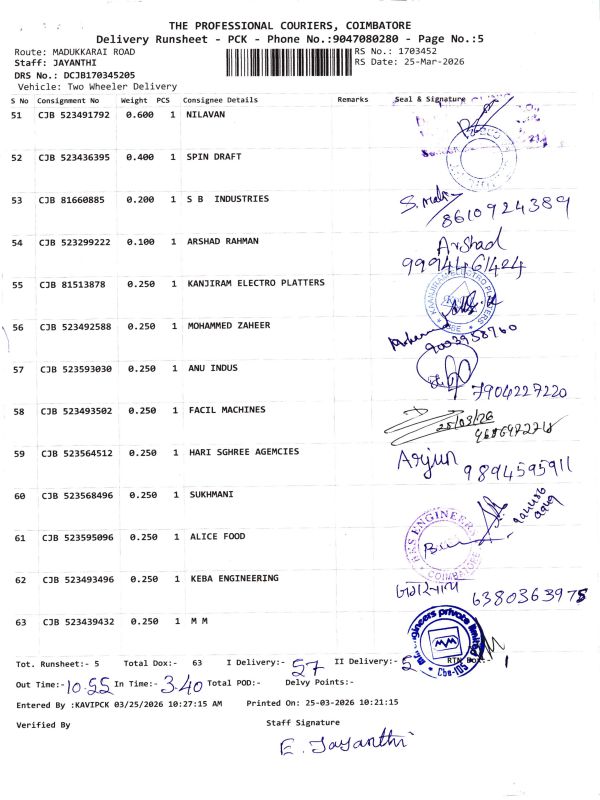 THE PROFESSIONAL COURIERS, COIMBATORE
Delivery Runsheet - PCK - Phone No.:9047080280 - Page No.:5
Route: MADUKKARAI ROAD RS No.: 1703452
Staff: JAYANTHI RS Date: 25-Mar-2026
DRS No.: DCJB170345205
Vehicle: Two Wheeler Delivery
S No Consignment No Weight PCS Consignee Details Remarks Seal & Signature
51 CJB 523491792 0.600 1 NILAVAN
52 CJB 523436395 0.400 1 SPIN DRAFT
53 CJB 81660885 0.200 1 S B INDUSTRIES
8610924389
54 CJB 523299222 0.100 1 ARSHAD RAHMAN Arshad
9994461424
55 CJB 81513878 0.250 1 KANJIRAM ELECTRO PLATTERS
56 CJB 523492588 0.250 1 MOHAMMED ZAHEER
9003958760
57 CJB 523593030 0.250 1 ANU INDUS
7904227220
58 CJB 523493502 0.250 1 FACIL MACHINES
25/03/26
59 CJB 523564512 0.250 1 HARI SGHREE AGEMCIES Arjun
9894595911
60 CJB 523568496 0.250 1 SUKHMANI
61 CJB 523595096 0.250 1 ALICE FOOD
ENGINEERS
COIMBATORE
62 CJB 523493496 0.250 1 KEBA ENGINEERING
6380363975
63 CJB 523439432 0.250 1 M M
Engineers private limited
MM
Cbe-105
Tot. Runsheet:- 5 Total Dox:- 63 I Delivery:- 57 II Delivery:- 5 RTN Dox:- 1
Out Time:- 10.55 In Time:- 3.40 Total POD:- Delvy Points:-
Entered By :KAVIPCK 03/25/2026 10:27:15 AM Printed On: 25-03-2026 10:21:15
Verified By Staff Signature
E. Jayanthi